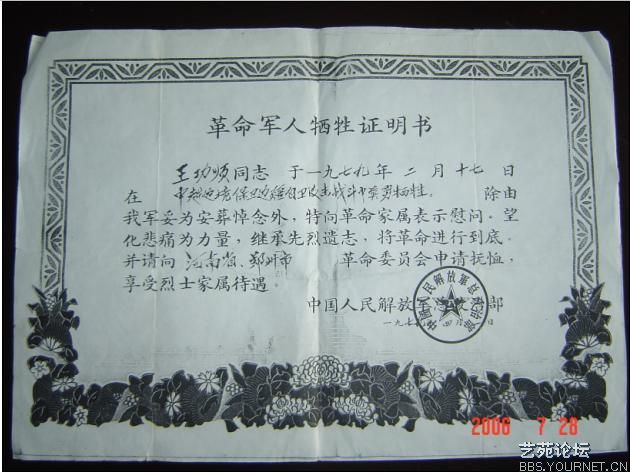 革命军人牺牲证明书
王功顺同志 于一九七九年 二 月 十七 日
在 中越边境保卫边疆自卫反击战斗中英勇牺牲。 除由
我军妥为安葬悼念外，特向革命家属表示慰问。望
化悲痛为力量，继承先烈遗志，将革命进行到底。
并请向 河南省、郑州市 革命委员会申请抚恤，
享受烈士家属待遇。
中国人民解放军总政治部
一九七 四月 日
中国人民解放军总政治部
2006 7 28
艺苑论坛
BBS.YOURNET.CN